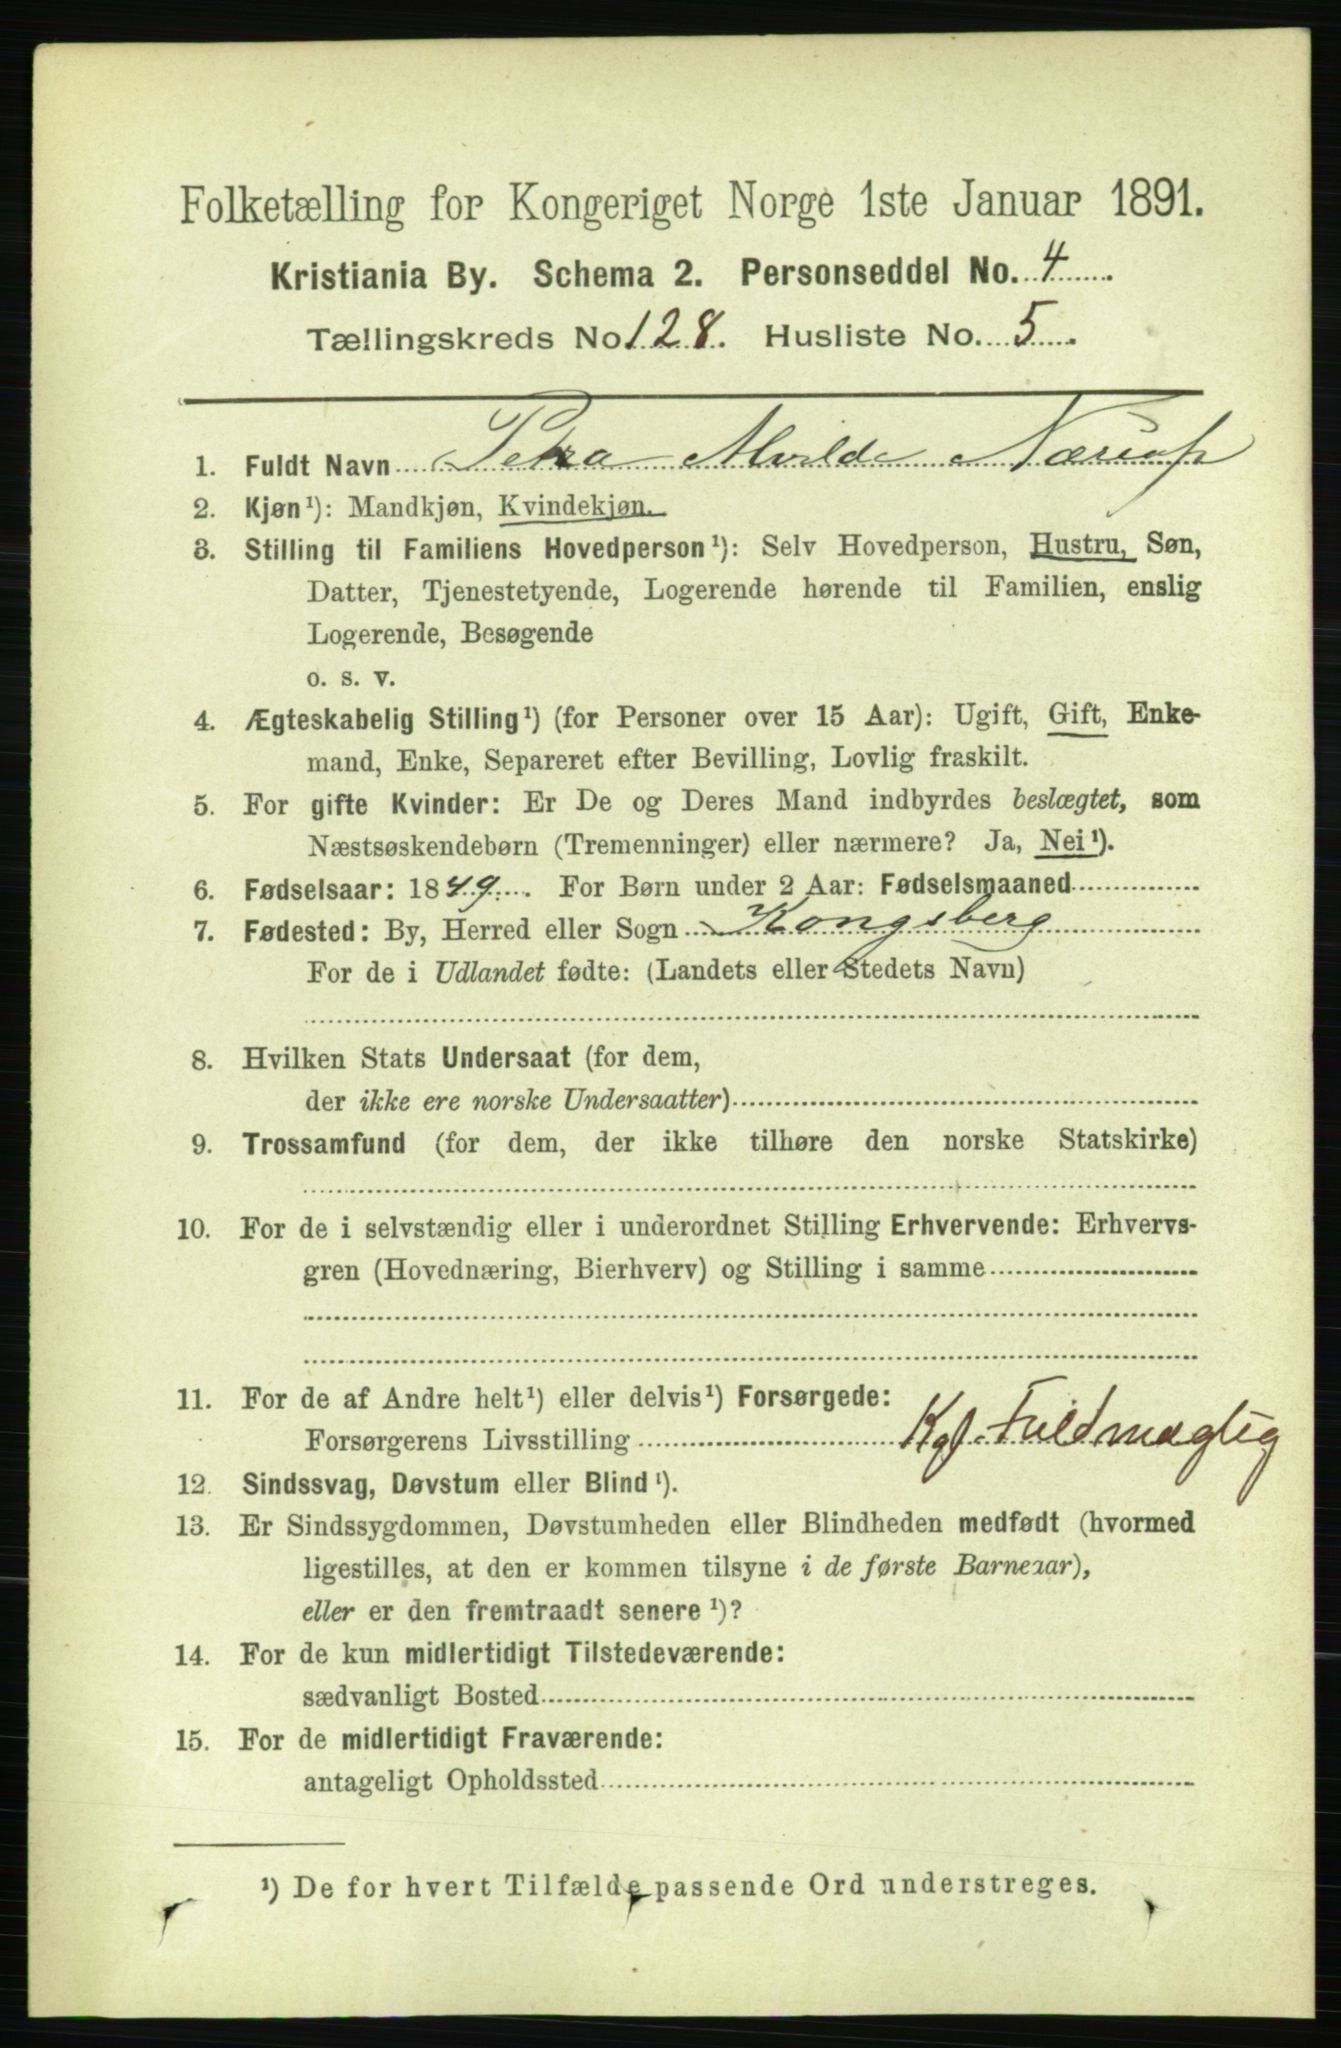 Folketælling for Kongeriget Norge 1ste Januar 1891.
Kristiania By. Schema 2. Personseddel No. 4
Tællingskreds No 128. Husliste No. 5
1. Fuldt Navn Petra Alvilde Nærup
2. Kjøn¹): Mandkjøn, Kvindekjøn.
3. Stilling til Familiens Hovedperson¹): Selv Hovedperson, Hustru, Søn,
Datter, Tjenestetyende, Logerende hørende til Familien, enslig
Logerende, Besøgende
o. s. v.
4. Ægteskabelig Stilling¹) (for Personer over 15 Aar): Ugift, Gift, Enke-
mand, Enke, Separeret efter Bevilling, Lovlig fraskilt.
5. For gifte Kvinder: Er De og Deres Mand indbyrdes beslægtet, som
Næstsøskendebørn (Tremenninger) eller nærmere? Ja, Nei¹).
6. Fødselsaar: 1849. For Børn under 2 Aar: Fødselsmaaned
7. Fødested: By, Herred eller Sogn Kongsberg
For de i Udlandet fødte: (Landets eller Stedets Navn)
8. Hvilken Stats Undersaat (for dem,
der ikke ere norske Undersaatter)
9. Trossamfund (for dem, der ikke tilhøre den norske Statskirke)
10. For de i selvstændig eller i underordnet Stilling Erhvervende: Erhvervs-
gren (Hovednæring, Bierhverv) og Stilling i samme
11. For de af Andre helt¹) eller delvis¹) Forsørgede:
Forsørgerens Livsstilling Kgl. Fuldmægtig
12. Sindssvag, Døvstum eller Blind¹).
13. Er Sindssygdommen, Døvstumheden eller Blindheden medfødt (hvormed
ligestilles, at den er kommen tilsyne i de første Barneaar),
eller er den fremtraadt senere¹)?
14. For de kun midlertidigt Tilstedeværende:
sædvanligt Bosted
15. For de midlertidigt Fraværende:
antageligt Opholdssted
¹) De for hvert Tilfælde passende Ord understreges.